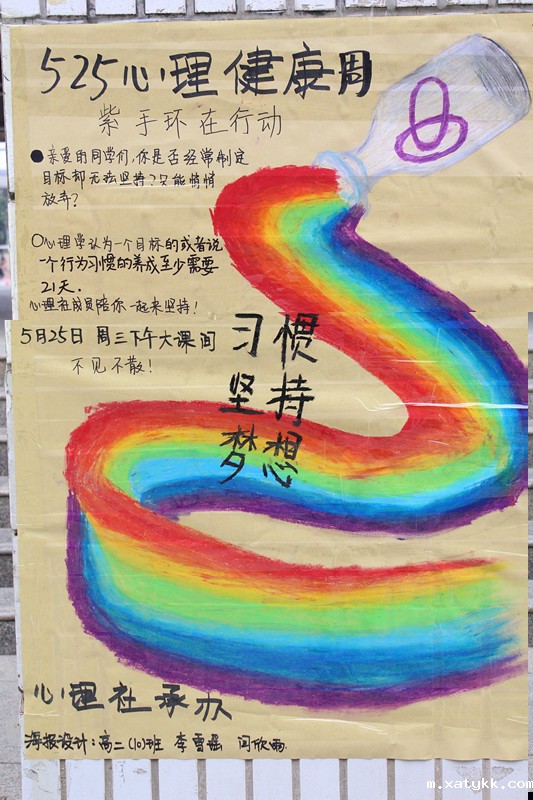 525心理健康周
紫手环在行动
●亲爱的同学们,你是否经常制定
目标却无法坚持?只能悄悄
放弃?
○心理学认为一个目标的或者说
一个行为习惯的养成至少需要
21天.
心理社成员陪你一起来坚持!
5月25日 周三下午大课间
不见不散!
习惯
坚持
梦想
心理社承办
海报设计:高二(10)班 李雪瑶 闫欣雨
m.xatykk.com